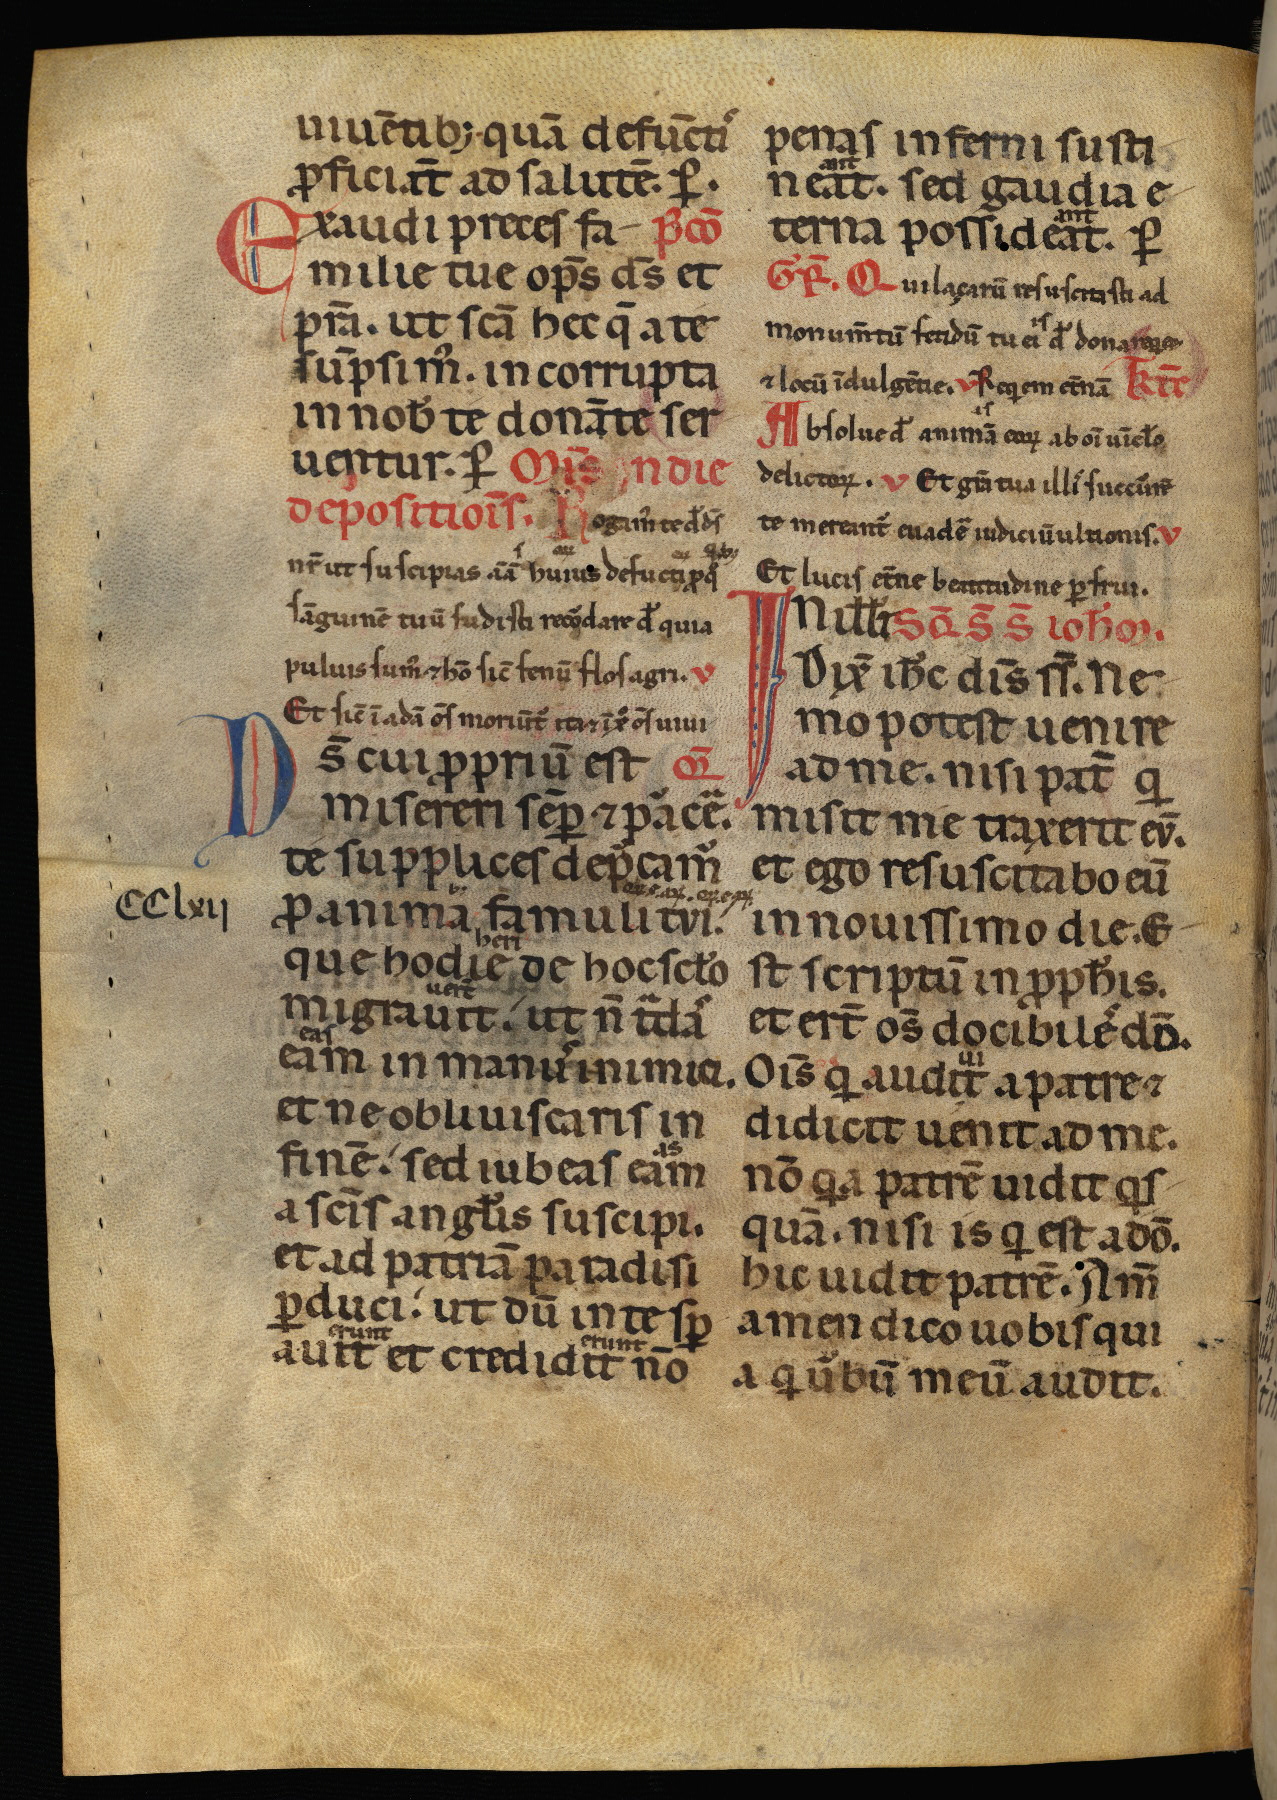 uiuētib; quā defūctꝰ
ꝓficiat̄ ad salutē. ꝑ.
Exaudi preces fa- P̄cō
milie tue op̄s d̄s et
pr̄a. ut sc̄ā hec q̄ a te
sūpsimꝰ. in corrupta
in nob̄ te donāte ser
uentur. ꝑ Mīs in die
depositiōis. Rogamꝰ te d̄ d̄s
nr̄ ut suscipias aīā huius defūcti ꝓ q̄
sāguinē tuū fudisti recordare d̄ quia
puluis sumꝰ ⁊ hō sic̄ fenū flos agri. v
Et sic̄ ī adā ōs moriūt ita ⁊ ī xp̄o ōs uiui
D̄s cui ꝓpriū est
misereri sēꝑ ⁊ parcere.
te supplices dep̄camꝰ
ꝓ anima famuli tui.
heri
CClxij
que hodie de hoc sc̄lo
uerūt
migrauit. ut n̄ tradas
eas
eam in manus inimici.
et ne obliuiscaris in
as
finē. sed iubeas eam
a sc̄is angl̄is suscipi.
et ad patriā paradisi
ꝑduci. ut dū in te sp̄
erunt erunt
auit et credidit nō
penas inferni susti
ant
neat. sed gaudia e
ant
terna possideat. ꝑ
Gr̄. Qui laçarū resuscitasti ad
is
monum̄tū fetidū tu ei d̄ dona requie
⁊ locū īdulgētie. v Requiem et̄nā Tr̄c
as
Absolue d̄ animā eoꝝ ab oī uīcl̄o
delictoꝝ. v Et grā tua illis succurrē
te mereant̄ euadē iudiciū ultionis. v
Et lucis et̄ne beatitudine ꝑfrui.
In ill̄ S̄ Q̄ S̄ S̄ ioh̄m.
Dix̄ ih̄c dīs ss̄. Ne
mo potest uenire
ad me. nisi pat̄ q
misit me traxerit eū.
et ego resuscitabo eū
in nouissimo die. E
st scriptū in ꝓph̄is.
et er̄t ōs docibiles dō.
ui
Oīs q audit a patre ⁊
didicit uenit ad me.
nō qa patrē uidit qs
quā. nisi is q est a dō.
hic uidit patrē. Am̄
amen dico uobis qui
a q ūbū meū audit.